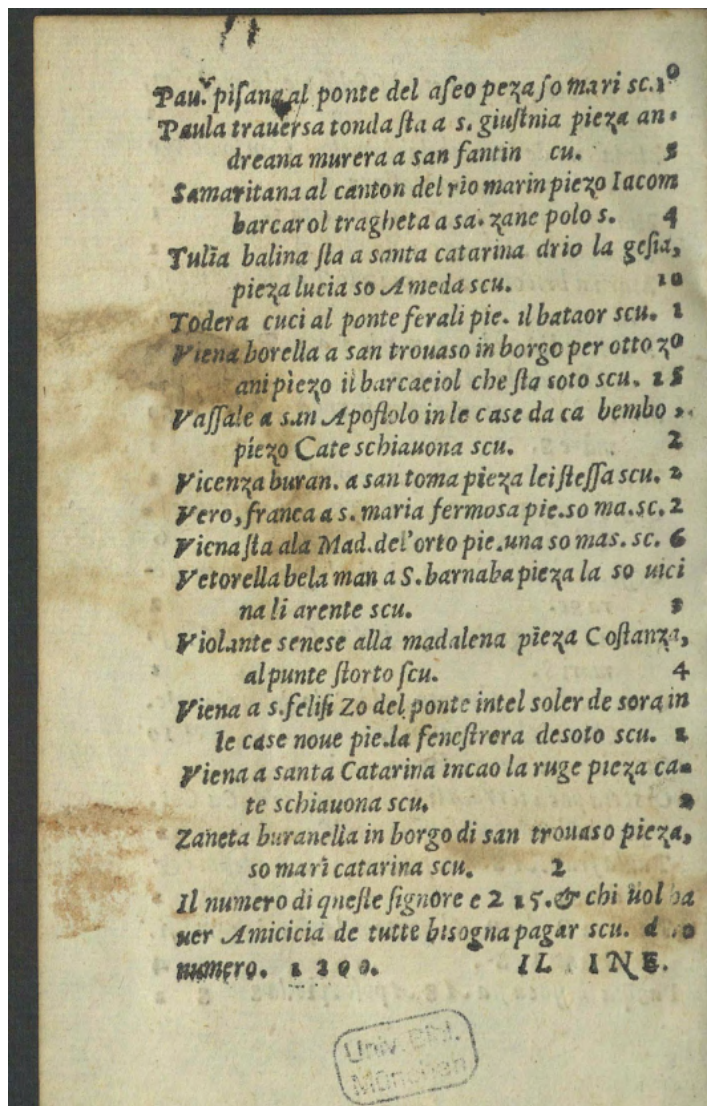 Pau. piſana al ponte del aſeo peza ſo mari sc. 10
Paula trauersa tonda ſta a s. giuſtnia pieza an-
dreana murera a san fantin cu. 5
Samaritana al canton del rio marin piezo Iacom
barcarol tragheta a sa. zane polo s. 4
Tulia balina ſta a santa catarina drio la geſia,
pieza lucia so Ameda scu. 10
Todera cuci al ponte ferali pie. il bataor scu. 1
Viena borella a san trouaso in borgo per otto zo
ani piezo il barcaciol che ſta soto scu. 15
Vaſſale a san Apoſtolo in le case da ca bembo,
piezo Cate schiauona scu. 2
Vicenza buran. a san toma pieza lei ſteſſa scu. 2
Vero, franca a s. maria fermosa pie. so ma. sc. 2
Viena ſta ala Mad. del'orto pie. una so mas. sc. 6
Vetorella bela man a S. barnaba pieza la so uici
na li arente scu.
Violante senese alla madalena pieza Coſtanza,
al punte ſtorto ſcu. 4
Viena a s. feliſi Zo del ponte intel soler de sora in
le case noue pie. la feneſtrera desoto scu. 1
Viena a santa Catarina in cao la ruge pieza ca-
te schiauona scu. 2
Zaneta buranella in borgo di san trouaso pieza,
so mari catarina scu. 2
Il numero di queſte ſignore e 215. & chi uol ha
uer Amicicia de tutte bisogna pagar scu. d
numero. 1200. IL INE.
Univ. Bibl.
München